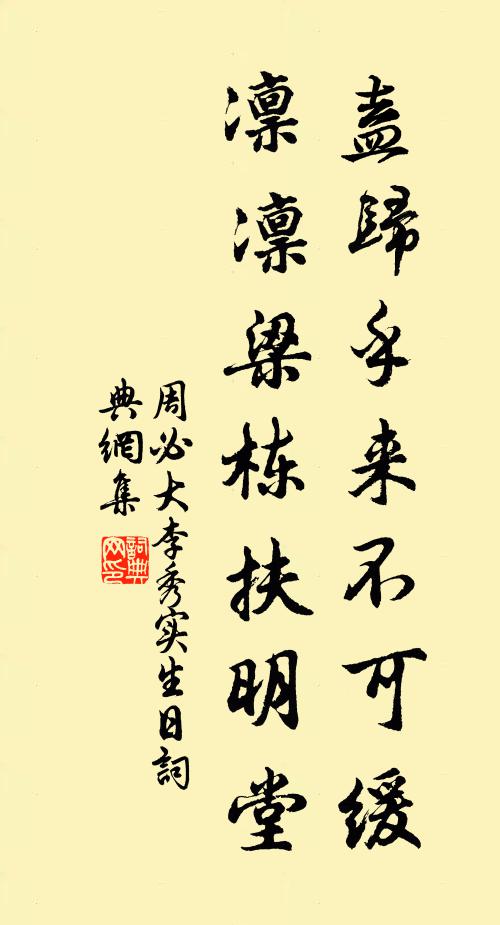 盍歸乎来不可缓
凛凛梁栋扶明堂
周必大李秀实生日詞
典網集
詞典网印